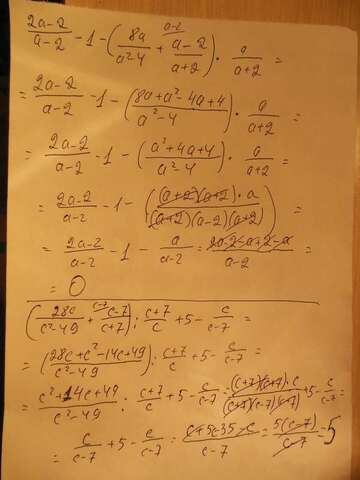 (2a-2)/(a-2) - 1 - (8a/(a²-4) + (a-2)/(a+2)) · a/(a+2) =
= (2a-2)/(a-2) - 1 - ((8a+a²-4a+4)/(a²-4)) · a/(a+2) =
= (2a-2)/(a-2) - 1 - ((a²+4a+4)/(a²-4)) · a/(a+2) =
= (2a-2)/(a-2) - 1 - (((a+2)(a+2)·a)/((a+2)(a-2)(a+2))) =
= (2a-2)/(a-2) - 1 - a/(a-2) = (2a-2-a+2-a)/(a-2) =
= 0
(28c/(c²-49) + (c-7)/(c+7)) : (c+7)/c + 5 - c/(c-7) =
= ((28c+c²-14c+49)/(c²-49)) : (c+7)/c + 5 - c/(c-7) =
= (c²+14c+49)/(c²-49) : (c+7)/c + 5 - c/(c-7) = ((c+7)(c+7)·c)/((c+7)(c-7)(c+7)) + 5 - c/(c-7) =
= c/(c-7) + 5 - c/(c-7) = (c+5c-35-c)/(c-7) = 5(c-7)/(c-7) = 5